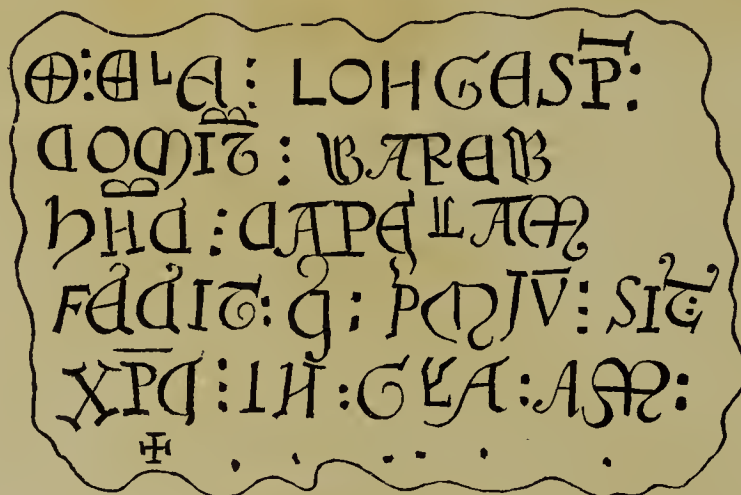 ⊕ : ELA : LONGESP̄ :
COMIT̄ : WAREW
HN̄C : CAPELLAM
FECIT : Q : PMIV̄ : SIT
XP̄C : IN : GLA : AM :
✠